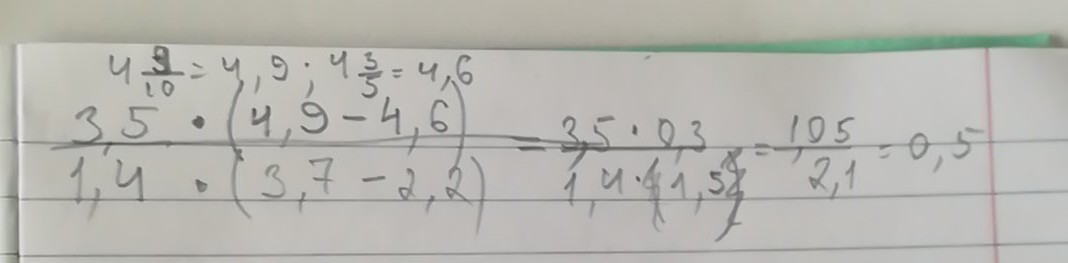 4 9/10 = 4,9; 4 3/5 = 4,6
3,5 · (4,9 - 4,6) / 1,4 · (3,7 - 2,2) = 3,5 · 0,3 / 1,4 · (1,5) = 1,05 / 2,1 = 0,5